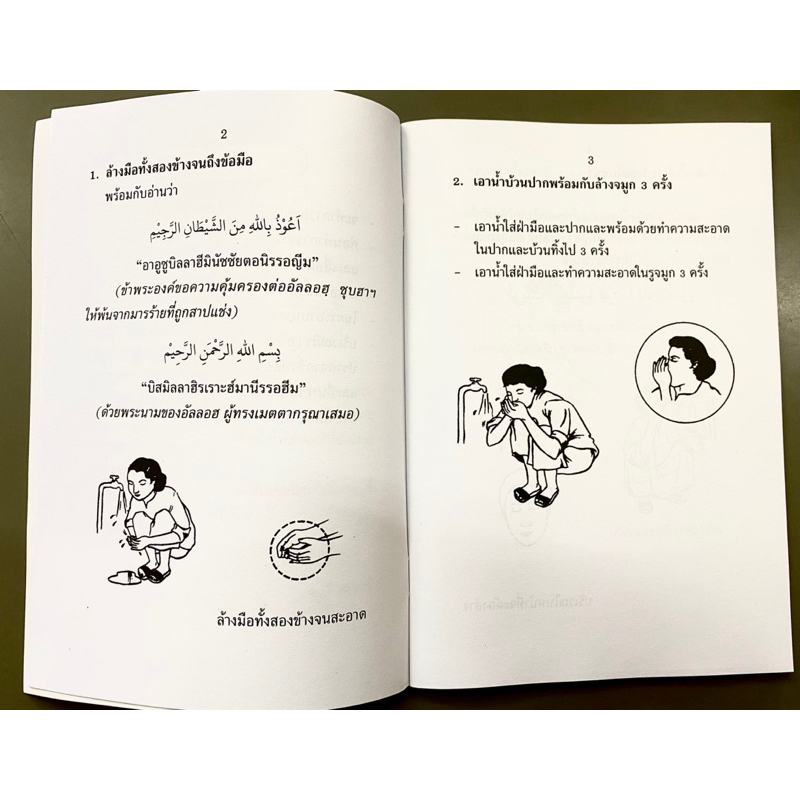 2
1. ล้างมือทั้งสองข้างจนถึงข้อมือ
พร้อมกับอ่านว่า
اَعُوْذُ بِاللهِ مِنَ الشَّيْطَانِ الرَّجِيْمِ
“อาอูซูบิลลาฮีมินัชซัยตอนิรรอญีม”
(ข้าพระองค์ขอความคุ้มครองต่ออัลลอฮฺ ซุบฮาฯ
ให้พ้นจากมารร้ายที่ถูกสาปแช่ง)
بِسْمِ اللهِ الرَّحْمَنِ الرَّحِيْمِ
“บิสมิลลาฮิรเราะฮ์มานีรรอฮีม”
(ด้วยพระนามของอัลลอฮ ผู้ทรงเมตตากรุณาเสมอ)
ล้างมือทั้งสองข้างจนสะอาด
3
2. เอาน้ำบ้วนปากพร้อมกับล้างจมูก 3 ครั้ง
- เอาน้ำใส่ฝ่ามือและปากและพร้อมด้วยทำความสะอาด
ในปากและบ้วนทิ้งไป 3 ครั้ง
- เอาน้ำใส่ฝ่ามือและทำความสะอาดในรูจมูก 3 ครั้ง